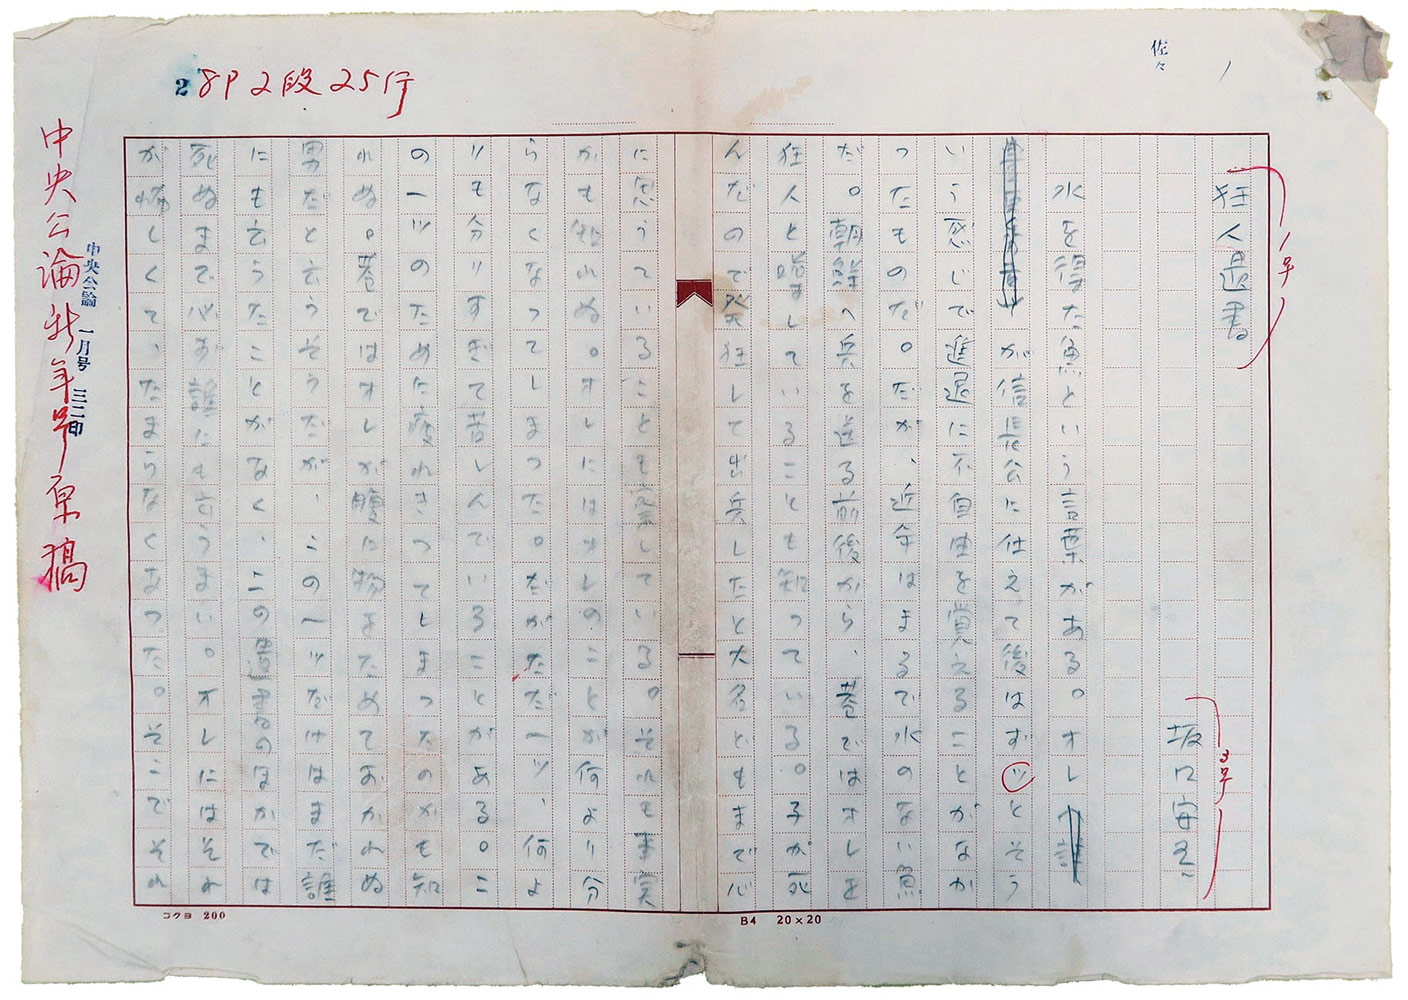 佐々
1
1号
狂人遺書
3号
坂口安吾
水を得た魚という言葉がある。オレ
が信長公に仕えて後はずッとそう
いう感じで進退に不自由を覚えることがなか
つたものだ。だが、近年はまるで水のない魚
だ。朝鮮へ兵を送る前後から、巷ではオレを
狂人と噂していることも知つている。子が死
んだので発狂して出兵したと大名どもまで心
に思うていることも察している。それも事実
かも知れぬ。オレにはオレのことが何より分
らなくなつてしまつた。だがただ一ツ、何よ
りも分りすぎて苦しんでいることがある。こ
の一ツのために疲れきつてしまつたのかも知
れぬ。巷ではオレが腹に物をためておかれぬ
男だと云うそうだが、この一ツだけはまだ誰
にも云うたことがなく、この遺書のほかでは
死ぬまで心あ誰にも云うまい。オレにはそれ
が悲しくて、たまらなくあつた。そこでそれ
2
8P2段25行
中央公論 一月号 三二印
中央公論新年号原稿
コクヨ 200
B4 20×20